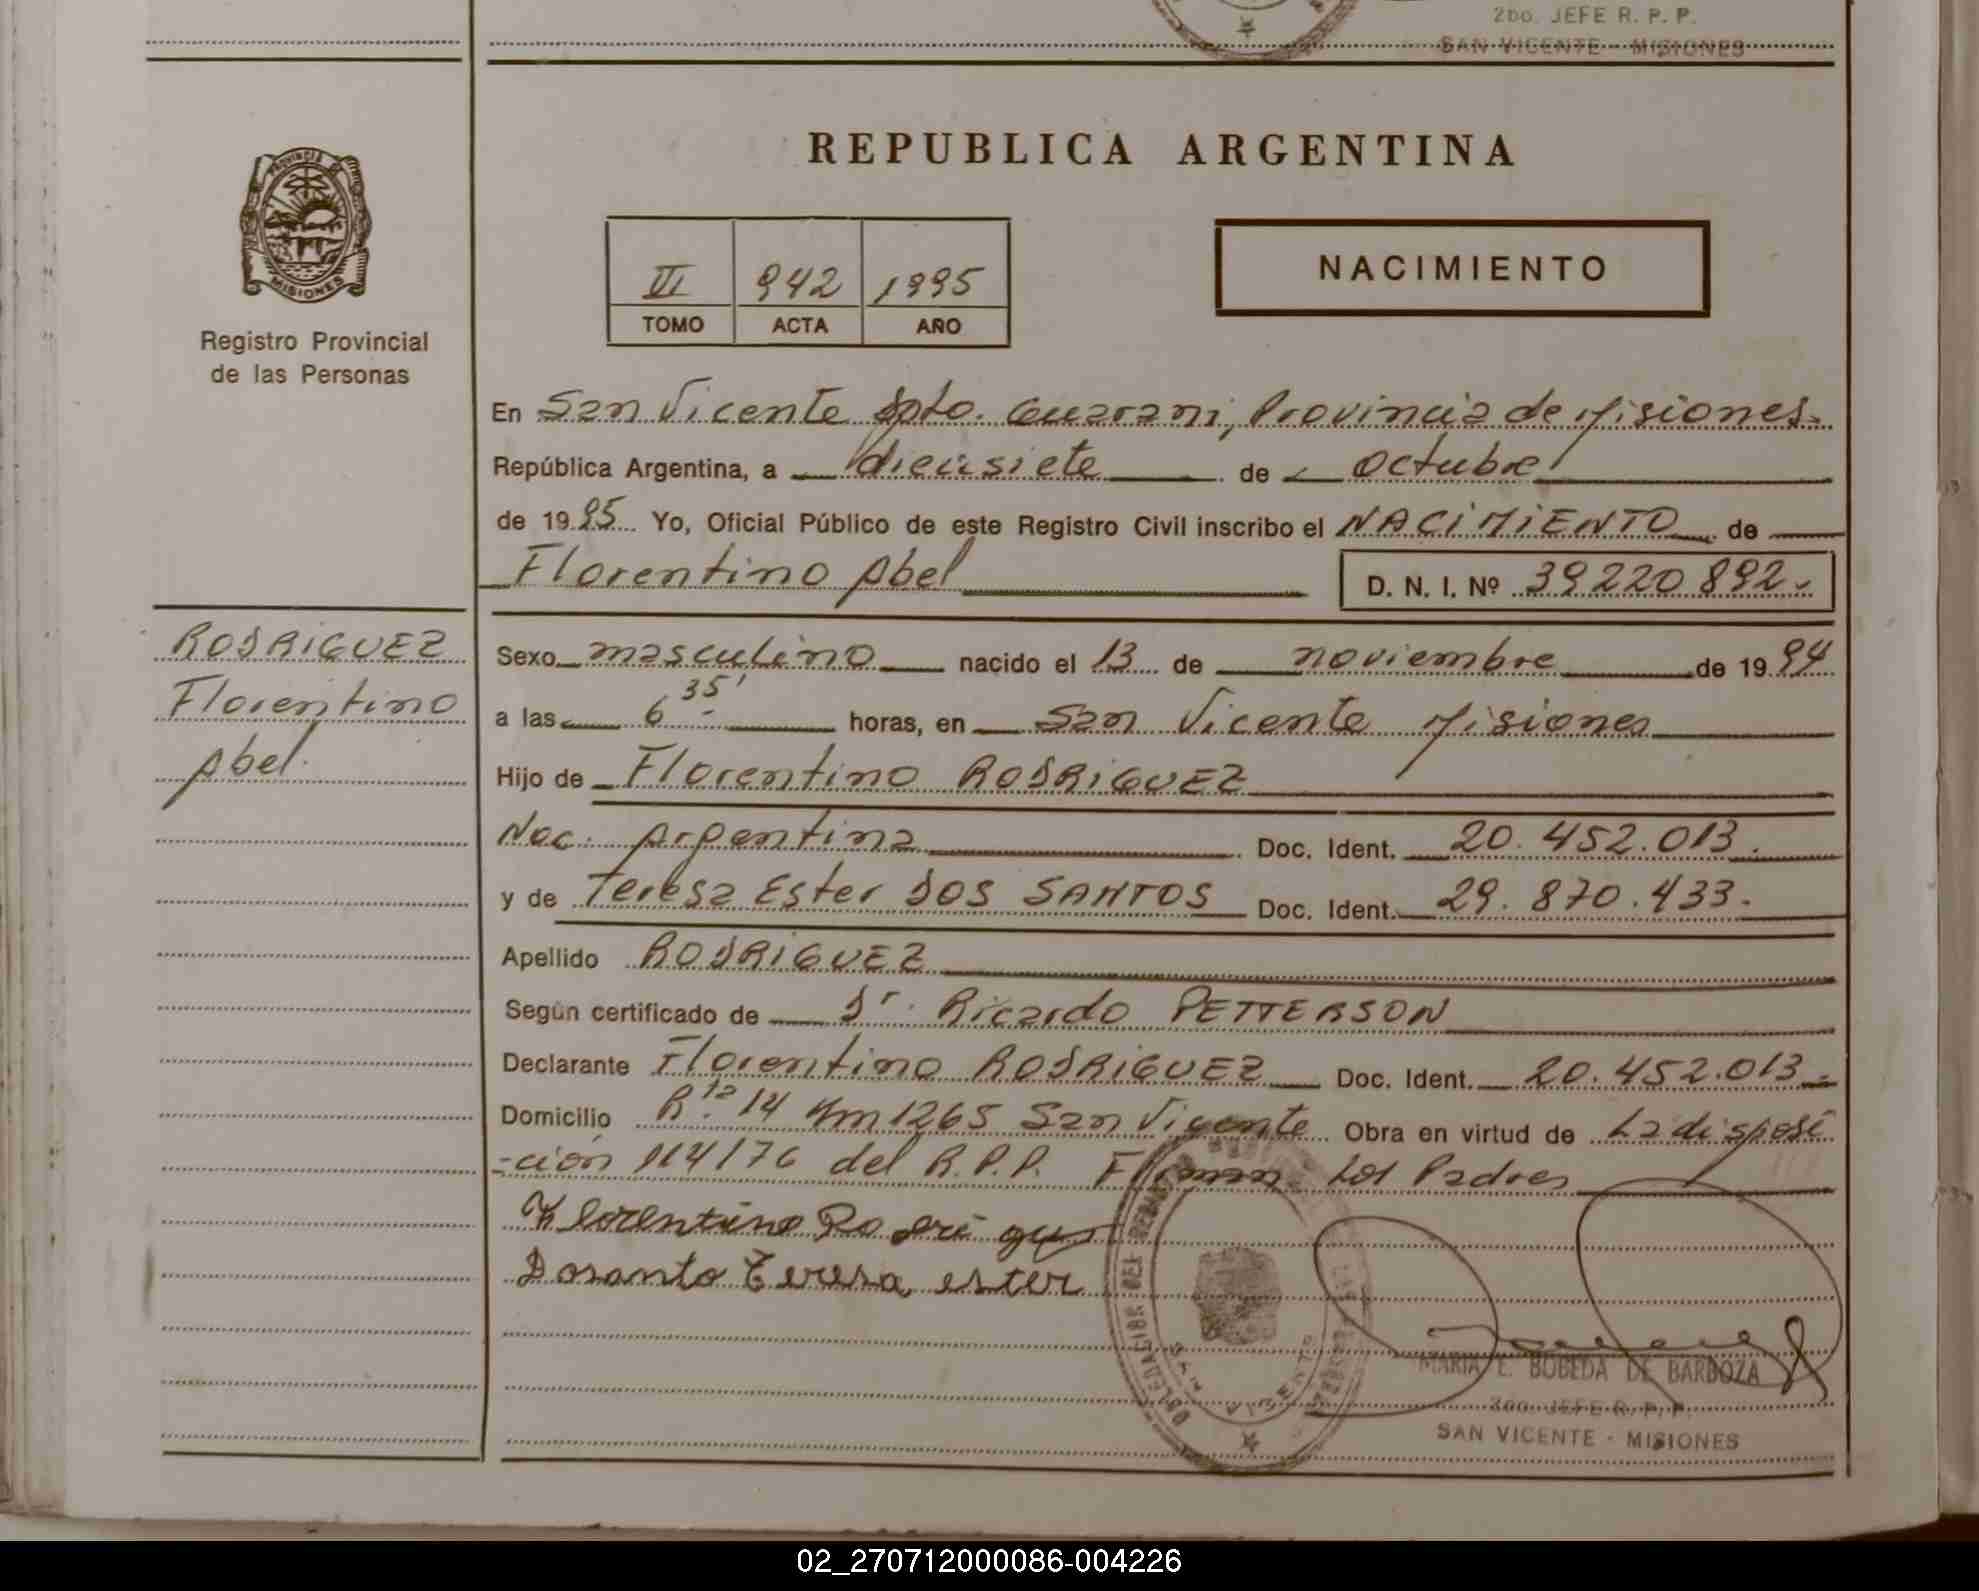 2DO. JEFE R. P. P.
SAN VICENTE - MISIONES
PROVINCIA DE
MISIONES
Registro Provincial
de las Personas
REPUBLICA ARGENTINA
VI 942 1995
TOMO ACTA AÑO
NACIMIENTO
En San Vicente Dpto. Guarani, Provincia de Misiones.
República Argentina, a diecisiete de octubre
de 1995 Yo, Oficial Público de este Registro Civil inscribo el NACIMIENTO de
Florentino Abel D. N. I. Nº 39220892.
RODRIGUEZ
Florentino
Abel.
Sexo masculino nacido el 13 de noviembre de 1994
a las 6 35' horas, en San Vicente Misiones
Hijo de Florentino RODRIGUEZ
Nac. Argentina Doc. Ident. 20.452.013.
y de Teresa Ester DOS SANTOS Doc. Ident. 29.870.433.
Apellido RODRIGUEZ
Según certificado de Dr. Ricardo PETTERSON
Declarante Florentino RODRIGUEZ Doc. Ident. 20.452.013.-
Domicilio R. 14 Km 1265 San Vicente Obra en virtud de La disposi
-ción 114/76 del R.P.P. Firman Los Padres
Florentino Rodrigu
Dosanto Teresa ester
SAN VICENTE
MARIA E. BOBEDA DE BARBOZA
2DO. JEFE R. P. P.
SAN VICENTE - MISIONES
02_270712000086-004226